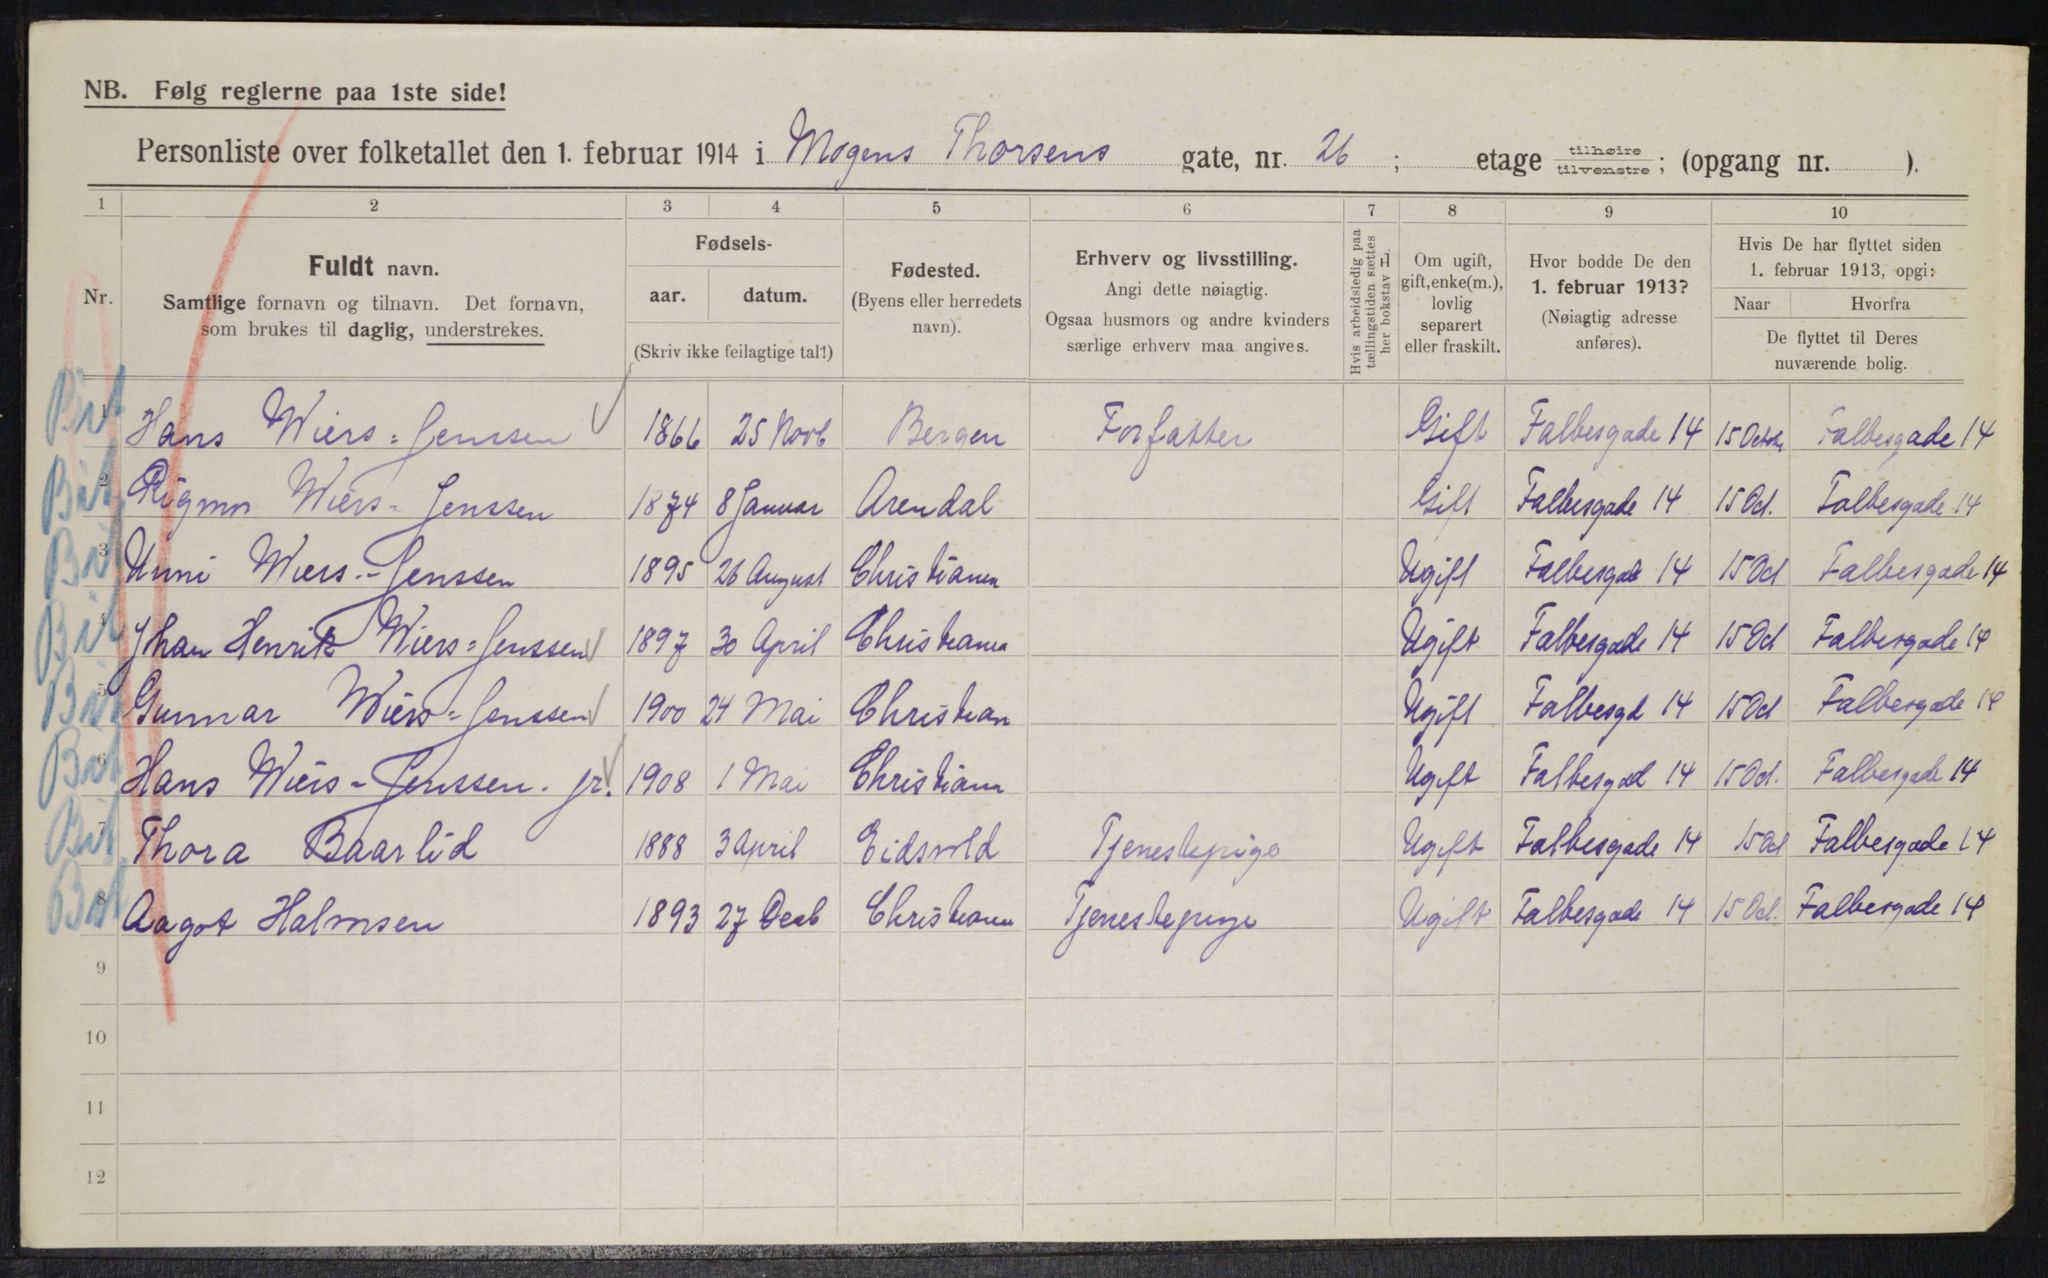 NB. Følg reglerne paa 1ste side!
Personliste over folketallet den 1. februar 1914 i Mogens Thorsens gate, nr. 26 ; etage tilhøire tilvenstre ; (opgang nr. ).
1 2 3 4 5 6 7 8 9 10
Nr.
Fuldt navn.
Samtlige fornavn og tilnavn. Det fornavn,
som brukes til daglig, understrekes.
Fødsels-
aar. datum.
(Skriv ikke feilagtige tal!)
Fødested.
(Byens eller herredets
navn).
Erhverv og livsstilling.
Angi dette nøiagtig.
Ogsaa husmors og andre kvinders
særlige erhverv maa angives.
Hvis arbeidsledig paa
tællingstiden sættes
her bokstav L.
Om ugift,
gift, enke(m.),
lovlig
separert
eller fraskilt.
Hvor bodde De den
1. februar 1913?
(Nøiagtig adresse
anføres).
Hvis De har flyttet siden
1. februar 1913, opgi:
Naar Hvorfra
De flyttet til Deres
nuværende bolig.
1 Hans Wiers=Jenssen 1866 25 Novb Bergen Forfatter Gift Falbesgade 14 15 Octob Falbesgade 14
2 Rigmor Wiers-Jenssen 1874 8 Januar Arendal Gift Falbesgade 14 15 Oct. Falbesgade 14
3 Unni Wiers-Jenssen 1895 26 August Christiania Ugift Falbesgade 14 15 Oct Falbesgade 14
4 Johan Henrik Wiers=Jenssen 1897 30 April Christiania Ugift Falbesgade 14 15 Oct Falbesgade 14
5 Gunnar Wiers=Jenssen 1900 24 Mai Christian Ugift Falbesgd 14 15 Oct Falbesgade 14
6 Hans Wiers-Jenssen. jr. 1908 1 Mai Christiania Ugift Falbesgad 14 15 Oct. Falbesgade 14
7 Thora Baarlid 1888 3 April Eidsvold Tjenestepige Ugift Falbesgade 14 15 Oct Falbesgade 14
8 Aagot Halvorsen 1893 27 Decb Christiania Tjenestepige Ugift Falbesgade 14 15 Oct. Falbesgade 14
9
10
11
12